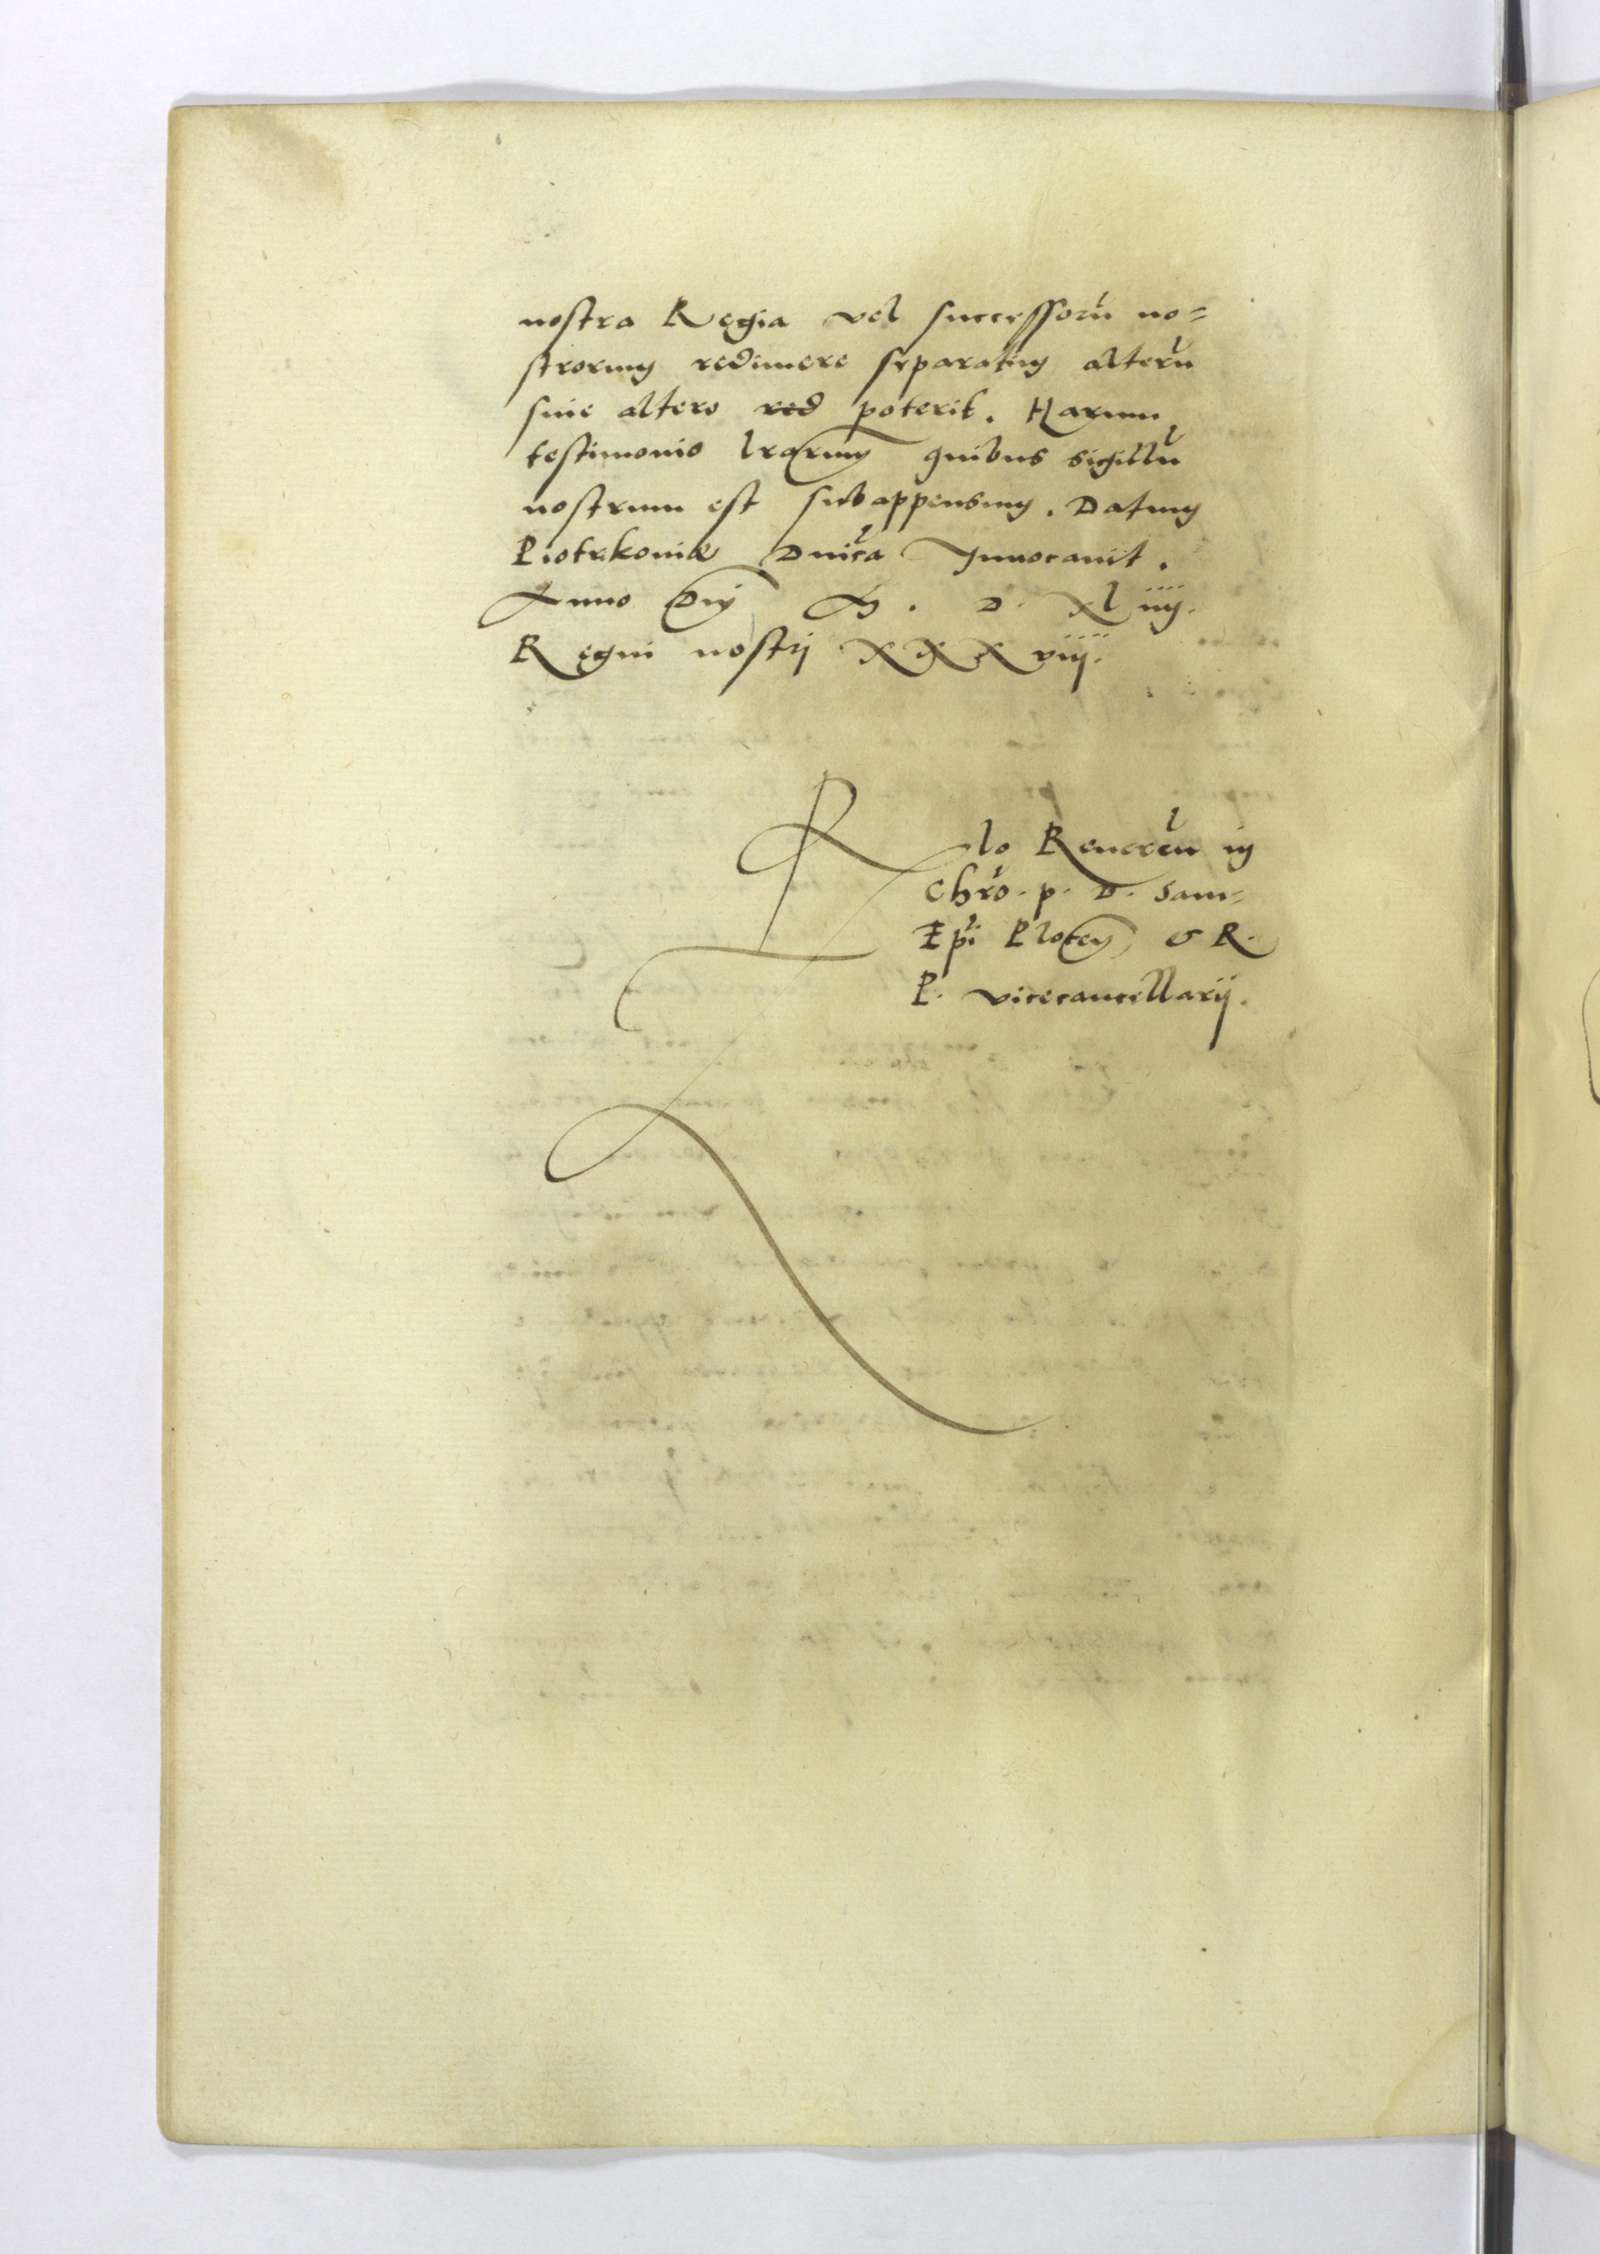 nostra Regia vel successorũ no=
strorum redimere separatim alterũ
sine altero red poterit. Harum
testimonio lrarum quibus sigillũ
nostrum est subappensum. Datum
Piotrkoviæ Dnica Invocavit.
Anno Dnj M. D. XL iiij.
Regni nostrj XXXviij.
Rlo Reveren in
Chro. p. D. Sam=
Epi Plocen & R.
P. vicecancellarij.